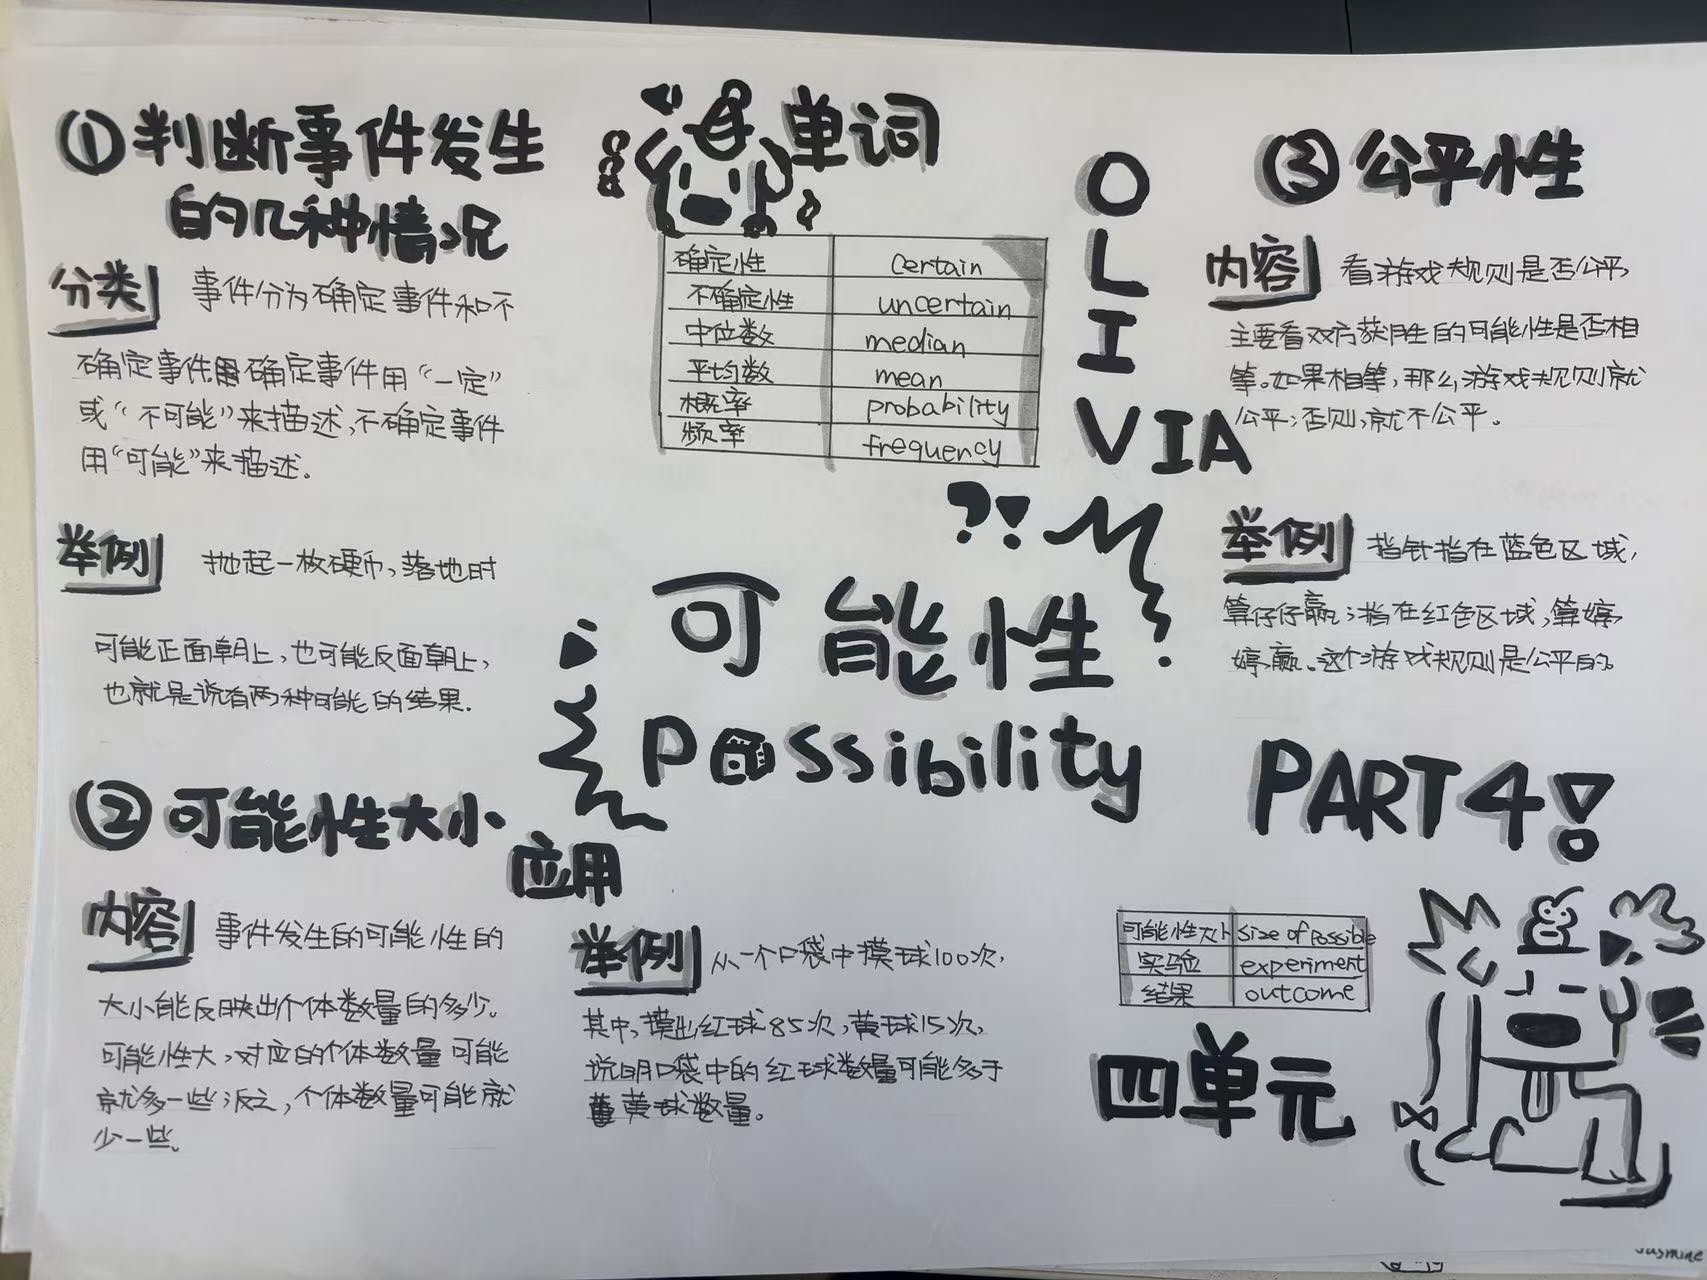 ①判断事件发生
的几种情况
分类 事件分为确定事件和不
确定事件确定事件用“一定”
或“不可能”来描述,不确定事件
用“可能”来描述。
举例 抛起一枚硬币,落地时
可能正面朝上,也可能反面朝上,
也就是说有两种可能的结果.
②可能性大小
应用
内容 事件发生的可能性的
大小能反映出个体数量的多少。
可能性大,对应的个体数量可能
就多一些;反之,个体数量可能就
少一些。
举例 从一个口袋中摸球100次,
其中,摸出红球85次,黄球15次,
说明口袋中的红球数量可能多于
黄球数量。
单词
确定性 certain
不确定性 uncertain
中位数 median
平均数 mean
概率 probability
频率 frequency
OLIVIA
?!
可能性
Possibility
③公平性
内容 看游戏规则是否公平,
主要看双方获胜的可能性是否相
等。如果相等,那么游戏规则就
公平;否则,就不公平。
举例 指针指在蓝色区域,
算仔仔赢;指在红色区域,算婷
婷赢。这个游戏规则是公平的。
PART4!
可能性大小 size of possible
实验 experiment
结果 outcome
四单元
Jasmine